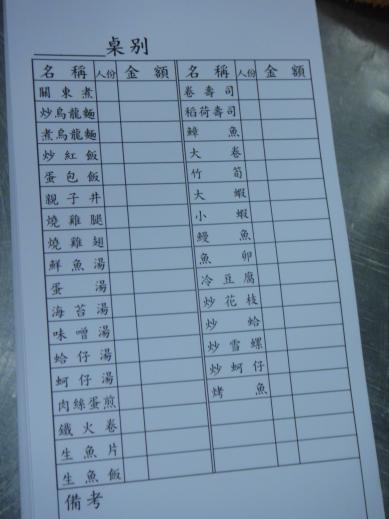 桌别
名稱 人份 金額 名稱 人份 金額
關東煮 卷壽司
炒烏龍麵 稻荷壽司
煮烏龍麵 鱆魚
炒紅飯 大卷
蛋包飯 竹筍
親子丼 大蝦
燒雞腿 小蝦
燒雞翅 鰻魚
鮮魚湯 魚卵
蛋湯 冷豆腐
海苔湯 炒花枝
味噌湯 炒蛤
蛤仔湯 炒雪螺
蚵仔湯 炒蚵仔
肉絲蛋煎 烤魚
鐵火卷
生魚片
生魚飯
備考